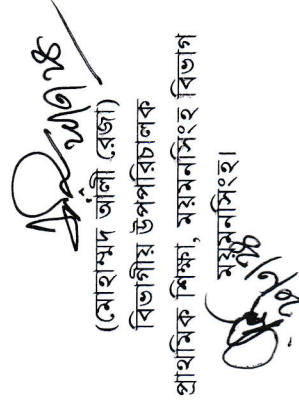 (মোহাম্মদ আলী রেজা)
বিভাগীয় উপপরিচালক
প্রাথমিক শিক্ষা, ময়মনসিংহ বিভাগ
ময়মনসিংহ।